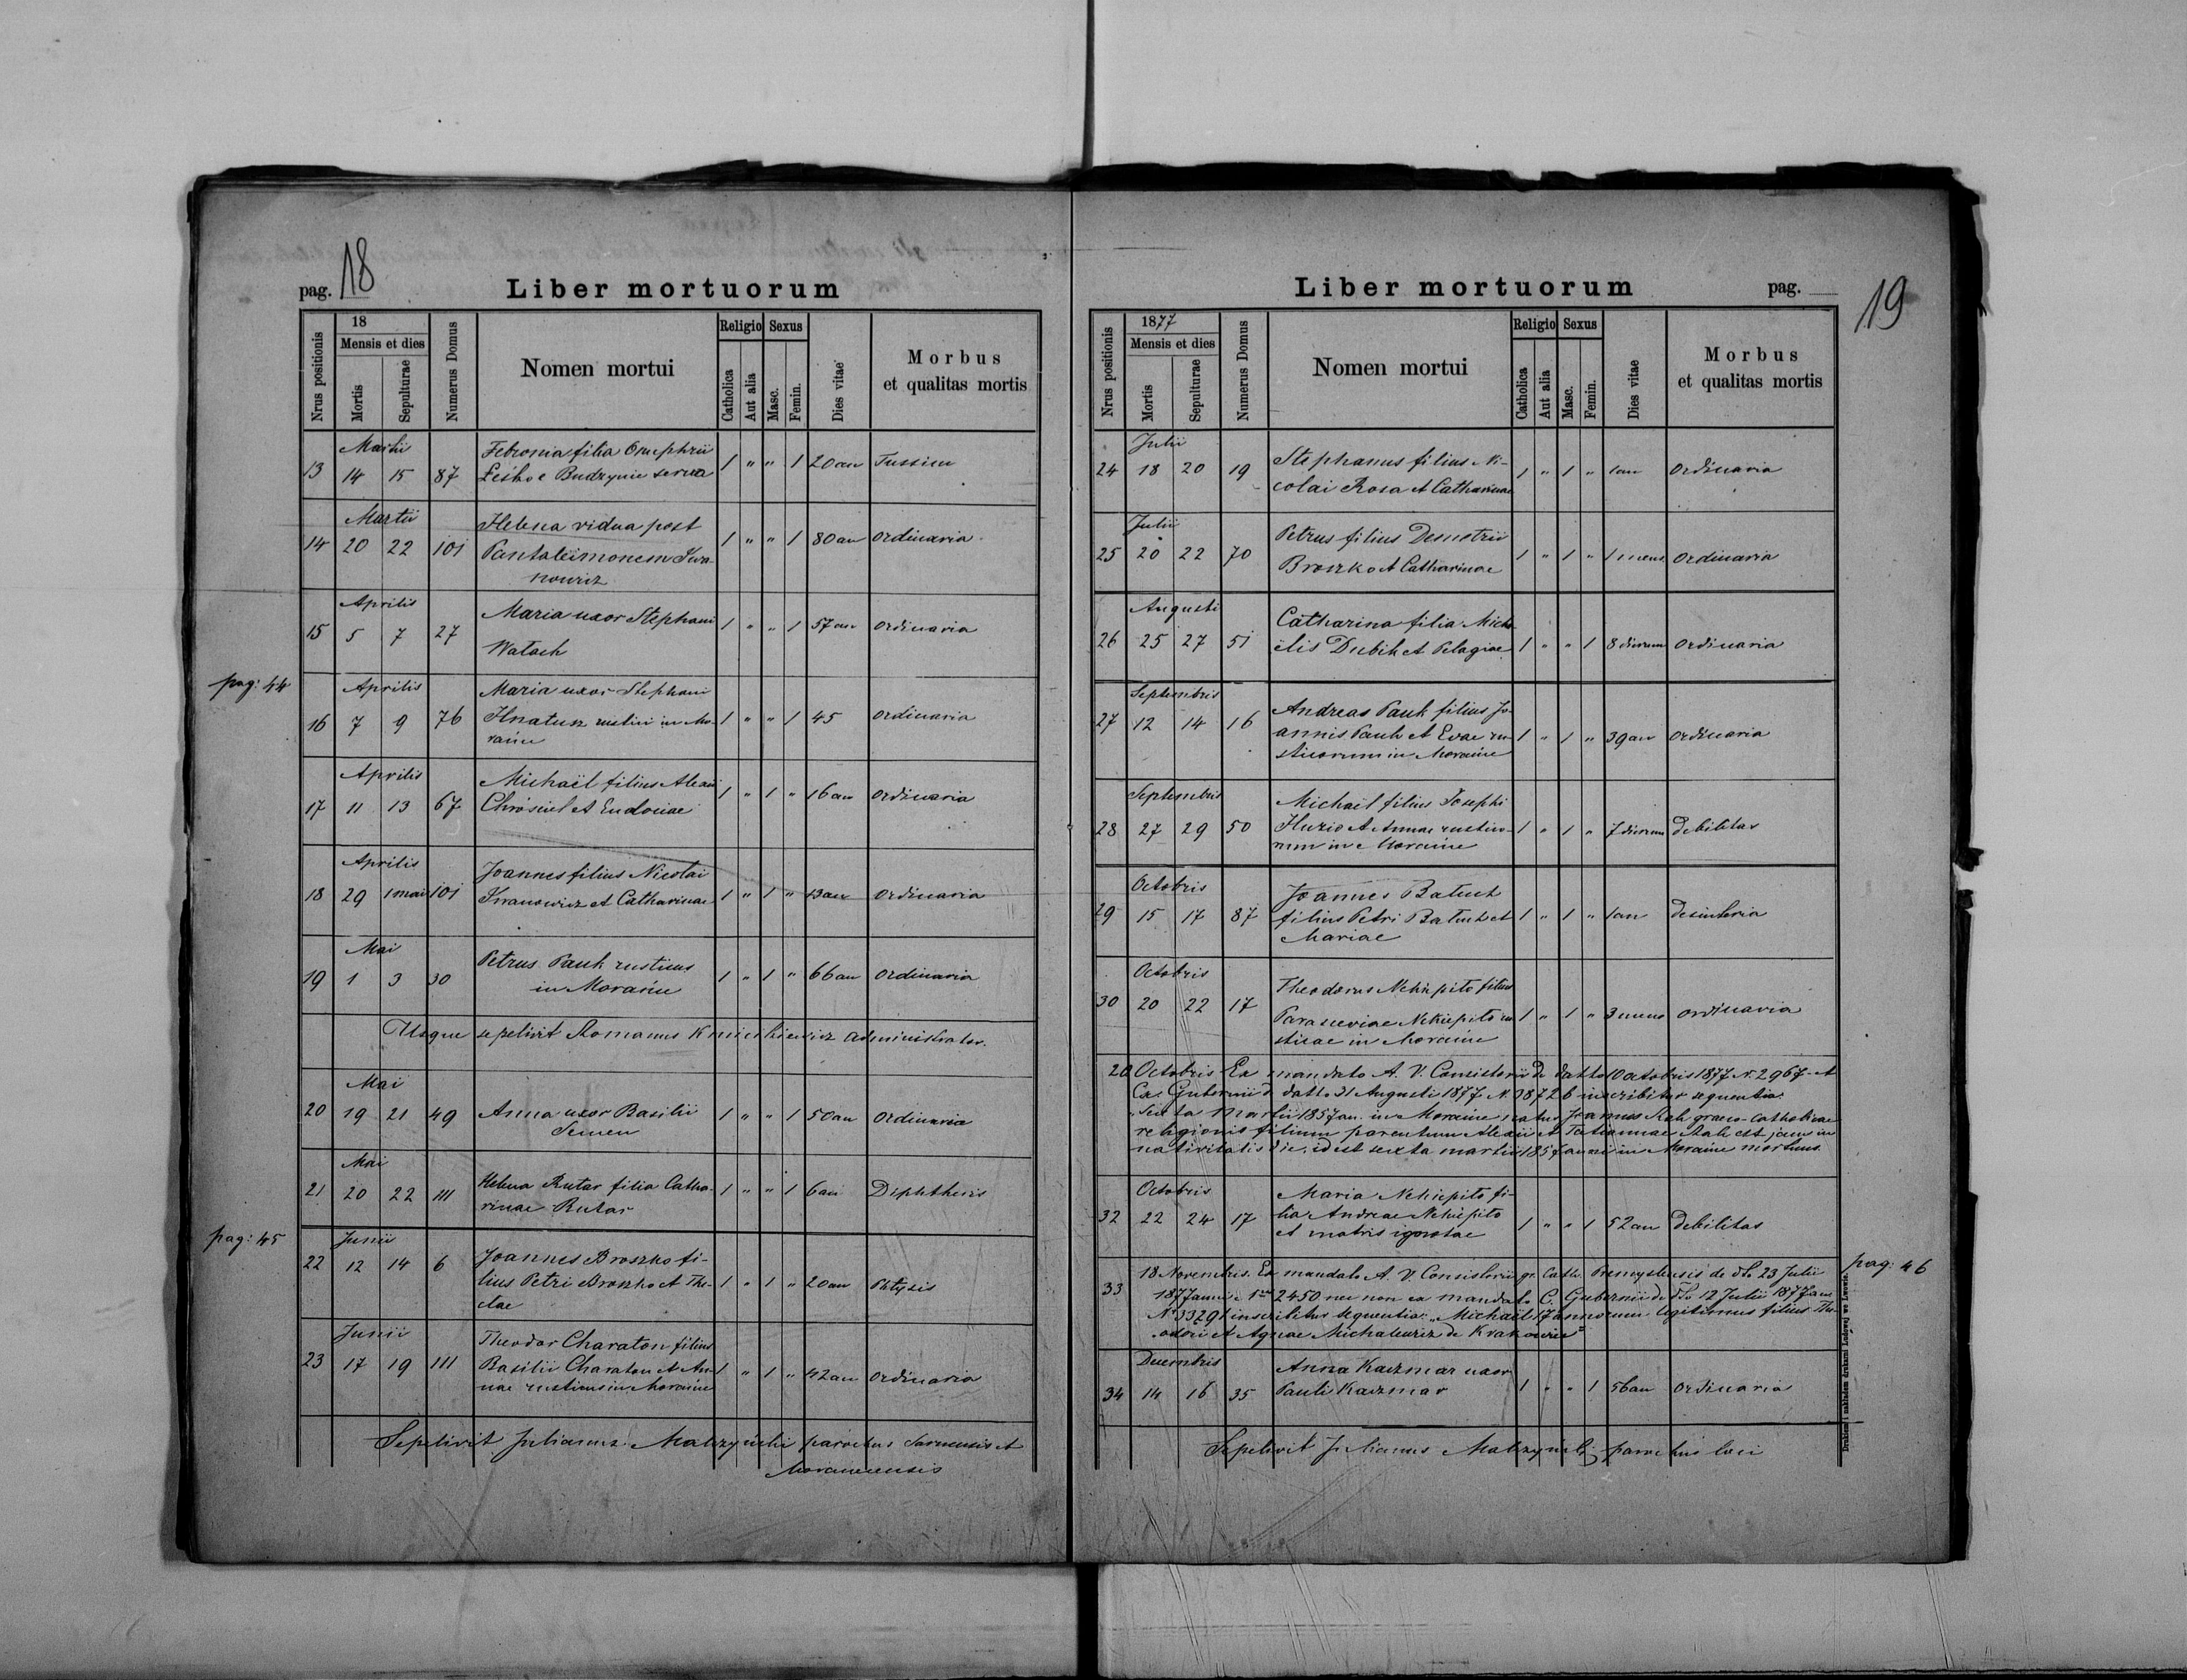 pag. 18
Liber mortuorum
Nrus positionis
18
Mensis et dies
Mortis
Sepulturae
Numerus Domus
Nomen mortui
Religio
Catholica
Aut alia
Sexus
Masc.
Femin.
Dies vitae
Morbus
et qualitas mortis
Martii
13 14 15 87 Febronia filia Onuphrii
Leśko e Budzynie serva 1 " " 1 20 an Tussim
Martii
14 20 22 101 Helena vidua post
Pantaleimonem Iwa-
nowicz 1 " " 1 80 an Ordinaria
Aprilis
15 5 7 27 Maria uxor Stephani
Wałach 1 " " 1 57 an Ordinaria
pag: 44
Aprilis
16 7 9 76 Maria uxor Stephani
Hnatuk rustici in Mo-
rańce 1 " " 1 45 Ordinaria
Aprilis
17 11 13 67 Michaël filius Alexii
et Eudoxiae 1 " 1 " 16 an Ordinaria
Aprilis
18 29 1 mai 101 Joannes filius Nicolai
Iwanowicz et Catharinae 1 " 1 " 13 an Ordinaria
Mai
19 1 3 30 Petrus Pauk rusticus
in Morańce 1 " 1 " 66 an Ordinaria
Usque sepelivit Romanus administrator.
Mai
20 19 21 49 Anna uxor Basilii
Semen 1 " " 1 50 an Ordinaria
Mai
21 20 22 111 Helena Rutar filia Catha-
rinae Rutar 1 " " 1 6 an Diphtheris
pag: 45
Junii
22 12 14 6 Joannes Broszko fi-
lius Petri Broszko et The-
clae 1 " 1 " 20 an Phtysis
Junii
23 17 19 111 Theodor Charaton filius
Basilii Charaton et An-
nae rusticus in Morańce 1 " 1 " 42 an Ordinaria
Sepelivit Julianus parochus et
19
Liber mortuorum
pag.
Nrus positionis
1877
Mensis et dies
Mortis
Sepulturae
Numerus Domus
Nomen mortui
Religio
Catholica
Aut alia
Sexus
Masc.
Femin.
Dies vitae
Morbus
et qualitas mortis
Julii
24 18 20 19 Stephanus filius Ni-
colai Rosa et Catharinae 1 " 1 " 1 an Ordinaria
Julii
25 20 22 70 Petrus filius Demetrii
Broszko et Catharinae 1 " 1 " 1 mens. Ordinaria
Augusti
26 25 27 51 Catharina filia Micha-
ëlis Dubik et Pelagiae 1 " " 1 8 dierum Ordinaria
Septembris
27 12 14 16 Andreas Pauk filius Jo-
annis Pauk et Evae ru-
sticorum in Morańce 1 " 1 " 39 an Ordinaria
Septembris
28 27 29 50 Michaël filius Josephi
et Annae rustico-
rum in Morańce 1 " 1 " 7 dierum debilitas
Octobris
29 15 17 87 Joannes Batuch
filius Petri Batuch et
Mariae 1 " 1 " 1 an Desinteria
Octobris
30 20 22 17 Theodorus Nekiepiło filius
Parasceviae Nekiepiło ru-
sticae in Morańce 1 " 1 " 3 mens Ordinaria
20 Octobris Ex mandato A. V. Consistorii de datto 10 octobris 1877 N. 2967 et
Caes. Gubernii d datto 31 Augusti 1877 N. 38726 inscribitur sequentia:
"Sexta Martii 1857 an. in Morańce natus Joannes graeco-catholicae
religionis filium parentum Alexii et Tatiannae est jam in
nativitatis die, id est sexta martii 1857 anni in Morańce mortuus.
Octobris
32 22 24 17 Maria Nekiepiło fi-
lia Andreae Nekiepiło
et matris ignotae 1 " " 1 52 an Debilitas
pag: 46
33 18 Novembris. Ex mandato A. V. Consistorii gr. cath. Premysliensis de dto 23 Julii
1877 anni N 2450 nec non ex mandato C. Gubernii de dto 12 Julii 1877 an
N 33291 inscribitur sequentia: "Michaël 17 annorum legitimus filius The-
odori et Agnae Michalewicz de Krakowiec"
Decembris
34 14 16 35 Anna Kaczmar uxor
Pauli Kaczmar 1 " " 1 56 an Ordinaria
Sepelivit Julianus parochus loci
Drukiem i nakładem drukarni Ludowej we Lwowie.